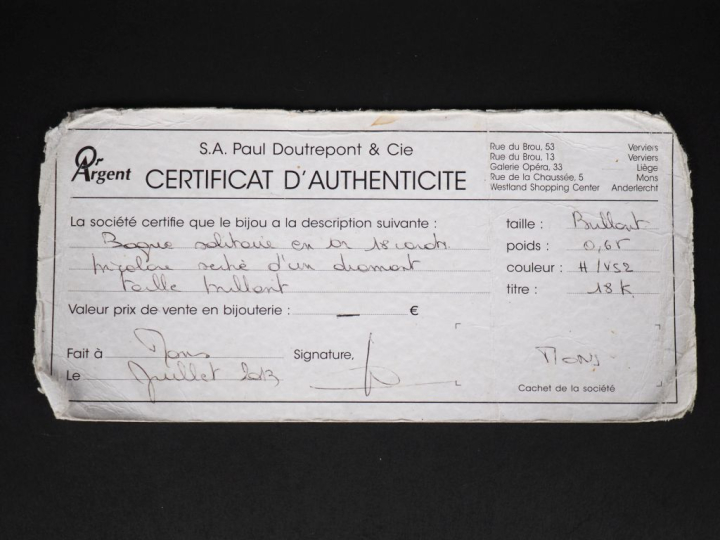 Or Argent
S.A. Paul Doutrepont & Cie
CERTIFICAT D'AUTHENTICITE
Rue du Brou, 53 Verviers
Rue du Brou, 13 Verviers
Galerie Opéra, 33 Liège
Rue de la Chaussée, 5 Mons
Westland Shopping Center Anderlercht
La société certifie que le bijou a la description suivante :
Bague solitaire en or 18 carats
tricolore serti d'un diamant
taille brillant
taille : Brillant
poids : 0,65
couleur : H/VS2
titre : 18 K
Valeur prix de vente en bijouterie : — €
Fait à Mons
Le Juillet 2013
Signature,
Mons
Cachet de la société